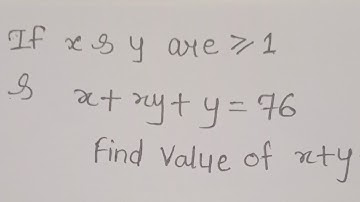 If x & y are ≥ 1
& x + xy + y = 76
Find Value of x+y